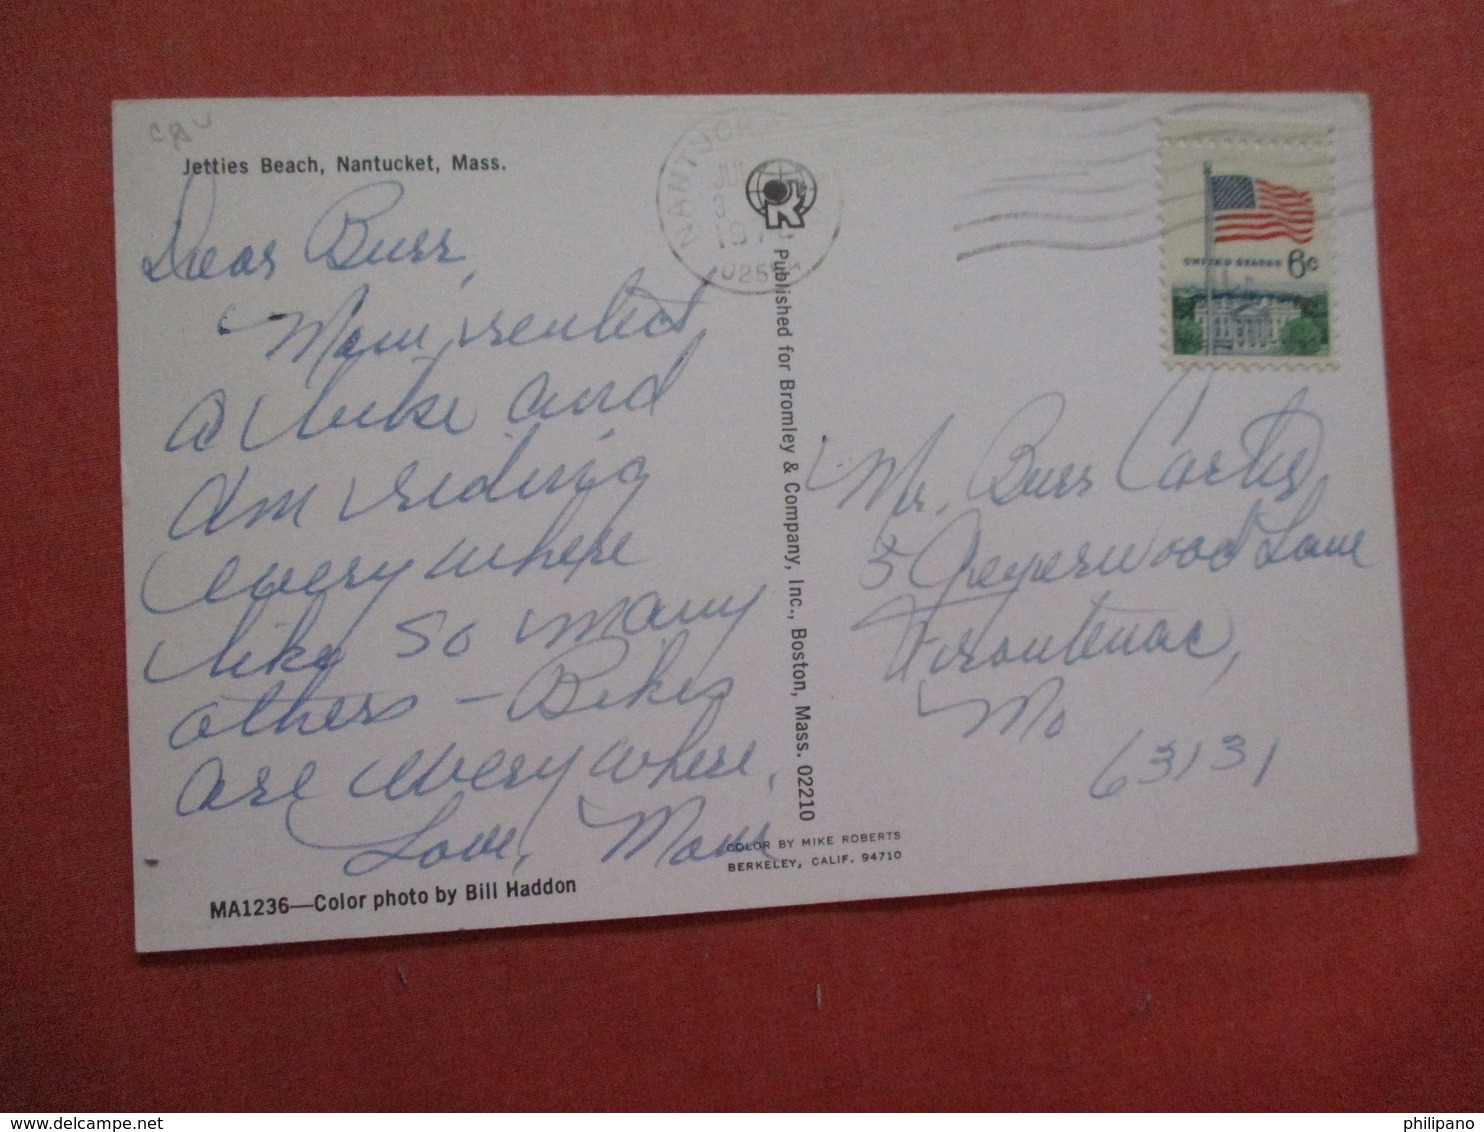 Jetties Beach, Nantucket, Mass.
Dear Burr,
Mom rented
a bike and
am riding
everywhere
like so many
others - Bikes
are everywhere.
Love, Mom
MA1236—Color photo by Bill Haddon
NANTUCK
JUL
197
025
Published for Bromley & Company, Inc., Boston, Mass. 02210
COLOR BY MIKE ROBERTS
BERKELEY, CALIF. 94710
UNITED STATES 6c
Mr. Burr Carter
3 Geyerwood Lane
Frontenac,
Mo
63131
www.delcampe.net
philipano